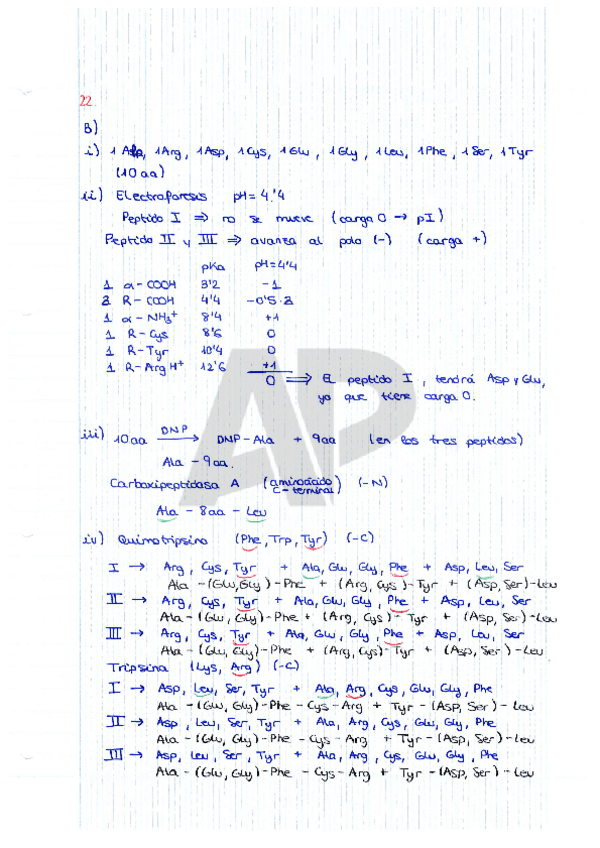 22
B)
i) 1 Ala, 1 Arg, 1 Asp, 1 Cys, 1 Glu, 1 Gly, 1 Leu, 1 Phe, 1 Ser, 1 Tyr
(10 aa)
ii) Electroforesis pH = 4'4
Peptido I ⇒ no se mueve (carga 0 → pI)
Peptido II y III ⇒ avanza al polo (-) (carga +)
pKa pH=4'4
1 α-COOH 3'2 -1
2 R-COOH 4'4 -0'5·2
1 α-NH3+ 8'4 +1
1 R-Cys 8'6 0
1 R-Tyr 10'4 0
1 R-Arg H+ 12'6 +1
0 ⇒ El peptido I, tendrá Asp y Glu,
ya que tiene carga 0.
iii) 10aa DNP → DNP-Ala + 9aa (en los tres peptidos)
Ala - 9aa.
Carboxipeptidasa A (aminoácido C-terminal) (-N)
Ala - 8aa - Leu
iv) Quimotripsina (Phe, Trp, Tyr) (-C)
I → Arg, Cys, Tyr + Ala, Glu, Gly, Phe + Asp, Leu, Ser
Ala - (Glu, Gly) - Phe + (Arg, Cys) - Tyr + (Asp, Ser) - Leu
II → Arg, Cys, Tyr + Ala, Glu, Gly, Phe + Asp, Leu, Ser
Ala - (Glu, Gly) - Phe + (Arg, Cys) - Tyr + (Asp, Ser) - Leu
III → Arg, Cys, Tyr + Ala, Glu, Gly, Phe + Asp, Leu, Ser
Ala - (Glu, Gly) - Phe + (Arg, Cys) - Tyr + (Asp, Ser) - Leu
Tripsina (Lys, Arg) (-C)
I → Asp, Leu, Ser, Tyr + Ala, Arg, Cys, Glu, Gly, Phe
Ala - (Glu, Gly) - Phe - Cys - Arg + Tyr - (Asp, Ser) - Leu
II → Asp, Leu, Ser, Tyr + Ala, Arg, Cys, Glu, Gly, Phe
Ala - (Glu, Gly) - Phe - Cys - Arg + Tyr - (Asp, Ser) - Leu
III → Asp, Leu, Ser, Tyr + Ala, Arg, Cys, Glu, Gly, Phe
Ala - (Glu, Gly) - Phe - Cys - Arg + Tyr - (Asp, Ser) - Leu
AP